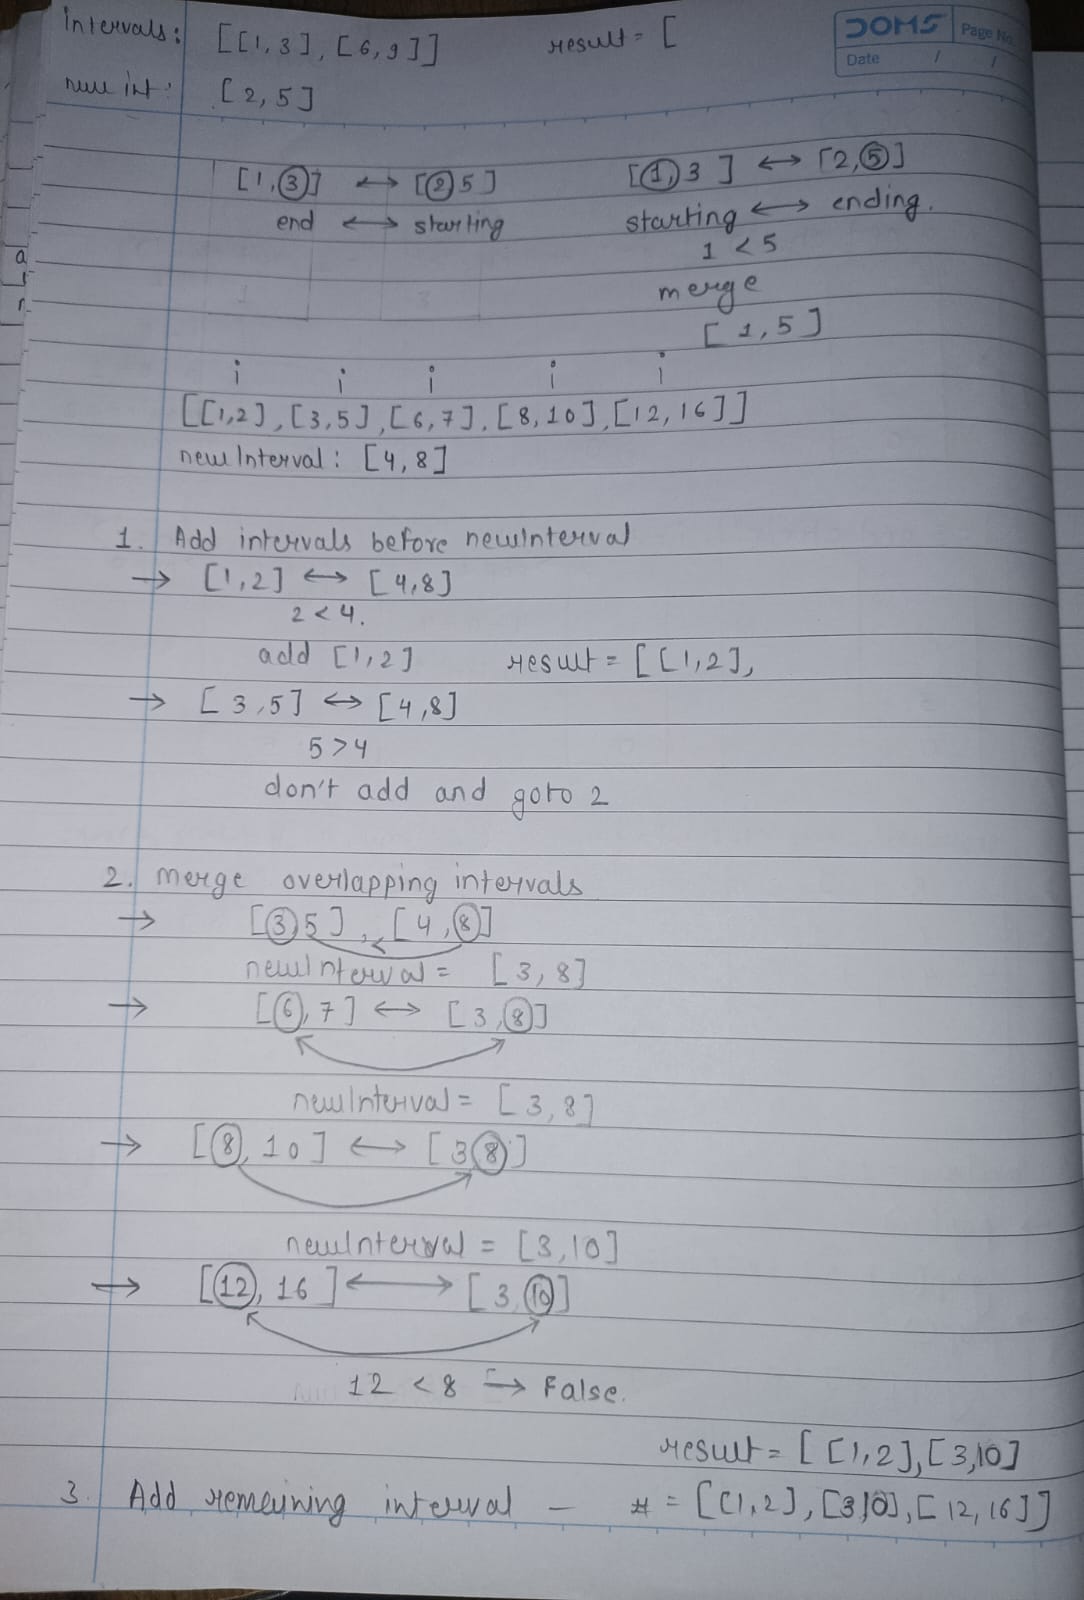 Intervals: [[1,3], [6,9]] result = [
new int: [2,5]
DOMS Page No.
Date / /
[1,3] ↔ [2 5] [1,3] ↔ [2,5]
end ↔ starting starting ↔ ending.
1 < 5
merge
[1,5]
i i i i i
[[1,2], [3,5], [6,7], [8,10], [12,16]]
newInterval: [4,8]
1. Add intervals before newInterval
→ [1,2] ↔ [4,8]
2 < 4.
add [1,2] result = [[1,2],
→ [3,5] ↔ [4,8]
5 > 4
don't add and goto 2
2. Merge overlapping intervals
→ [3 5], [4,8]
newInterval = [3,8]
→ [6,7] ↔ [3,8]
newInterval = [3,8]
→ [8,10] ↔ [3 8]
newInterval = [3,10]
→ [12,16] ↔ [3,10]
12 < 8 → False.
result = [[1,2],[3,10]
3. Add remaining interval - # = [[1,2],[3,10],[12,16]]